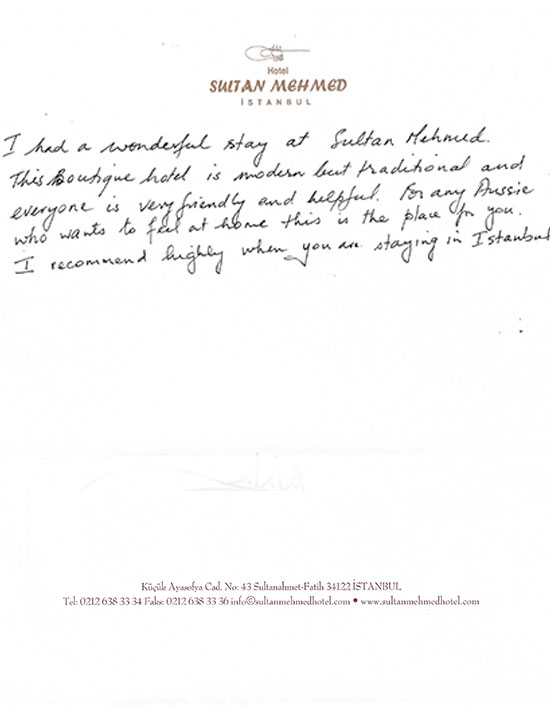 Hotel
SULTAN MEHMED
İSTANBUL
I had a wonderful stay at Sultan Mehmed.
This Boutique hotel is modern but traditional and
everyone is very friendly and helpful. For any Aussie
who wants to feel at home this is the place for you.
I recommend highly when you are staying in Istanbul
Küçük Ayasofya Cad. No: 43 Sultanahmet-Fatih 34122 İSTANBUL
Tel: 0212 638 33 34 Faks: 0212 638 33 36 info@sultanmehmedhotel.com • www.sultanmehmedhotel.com